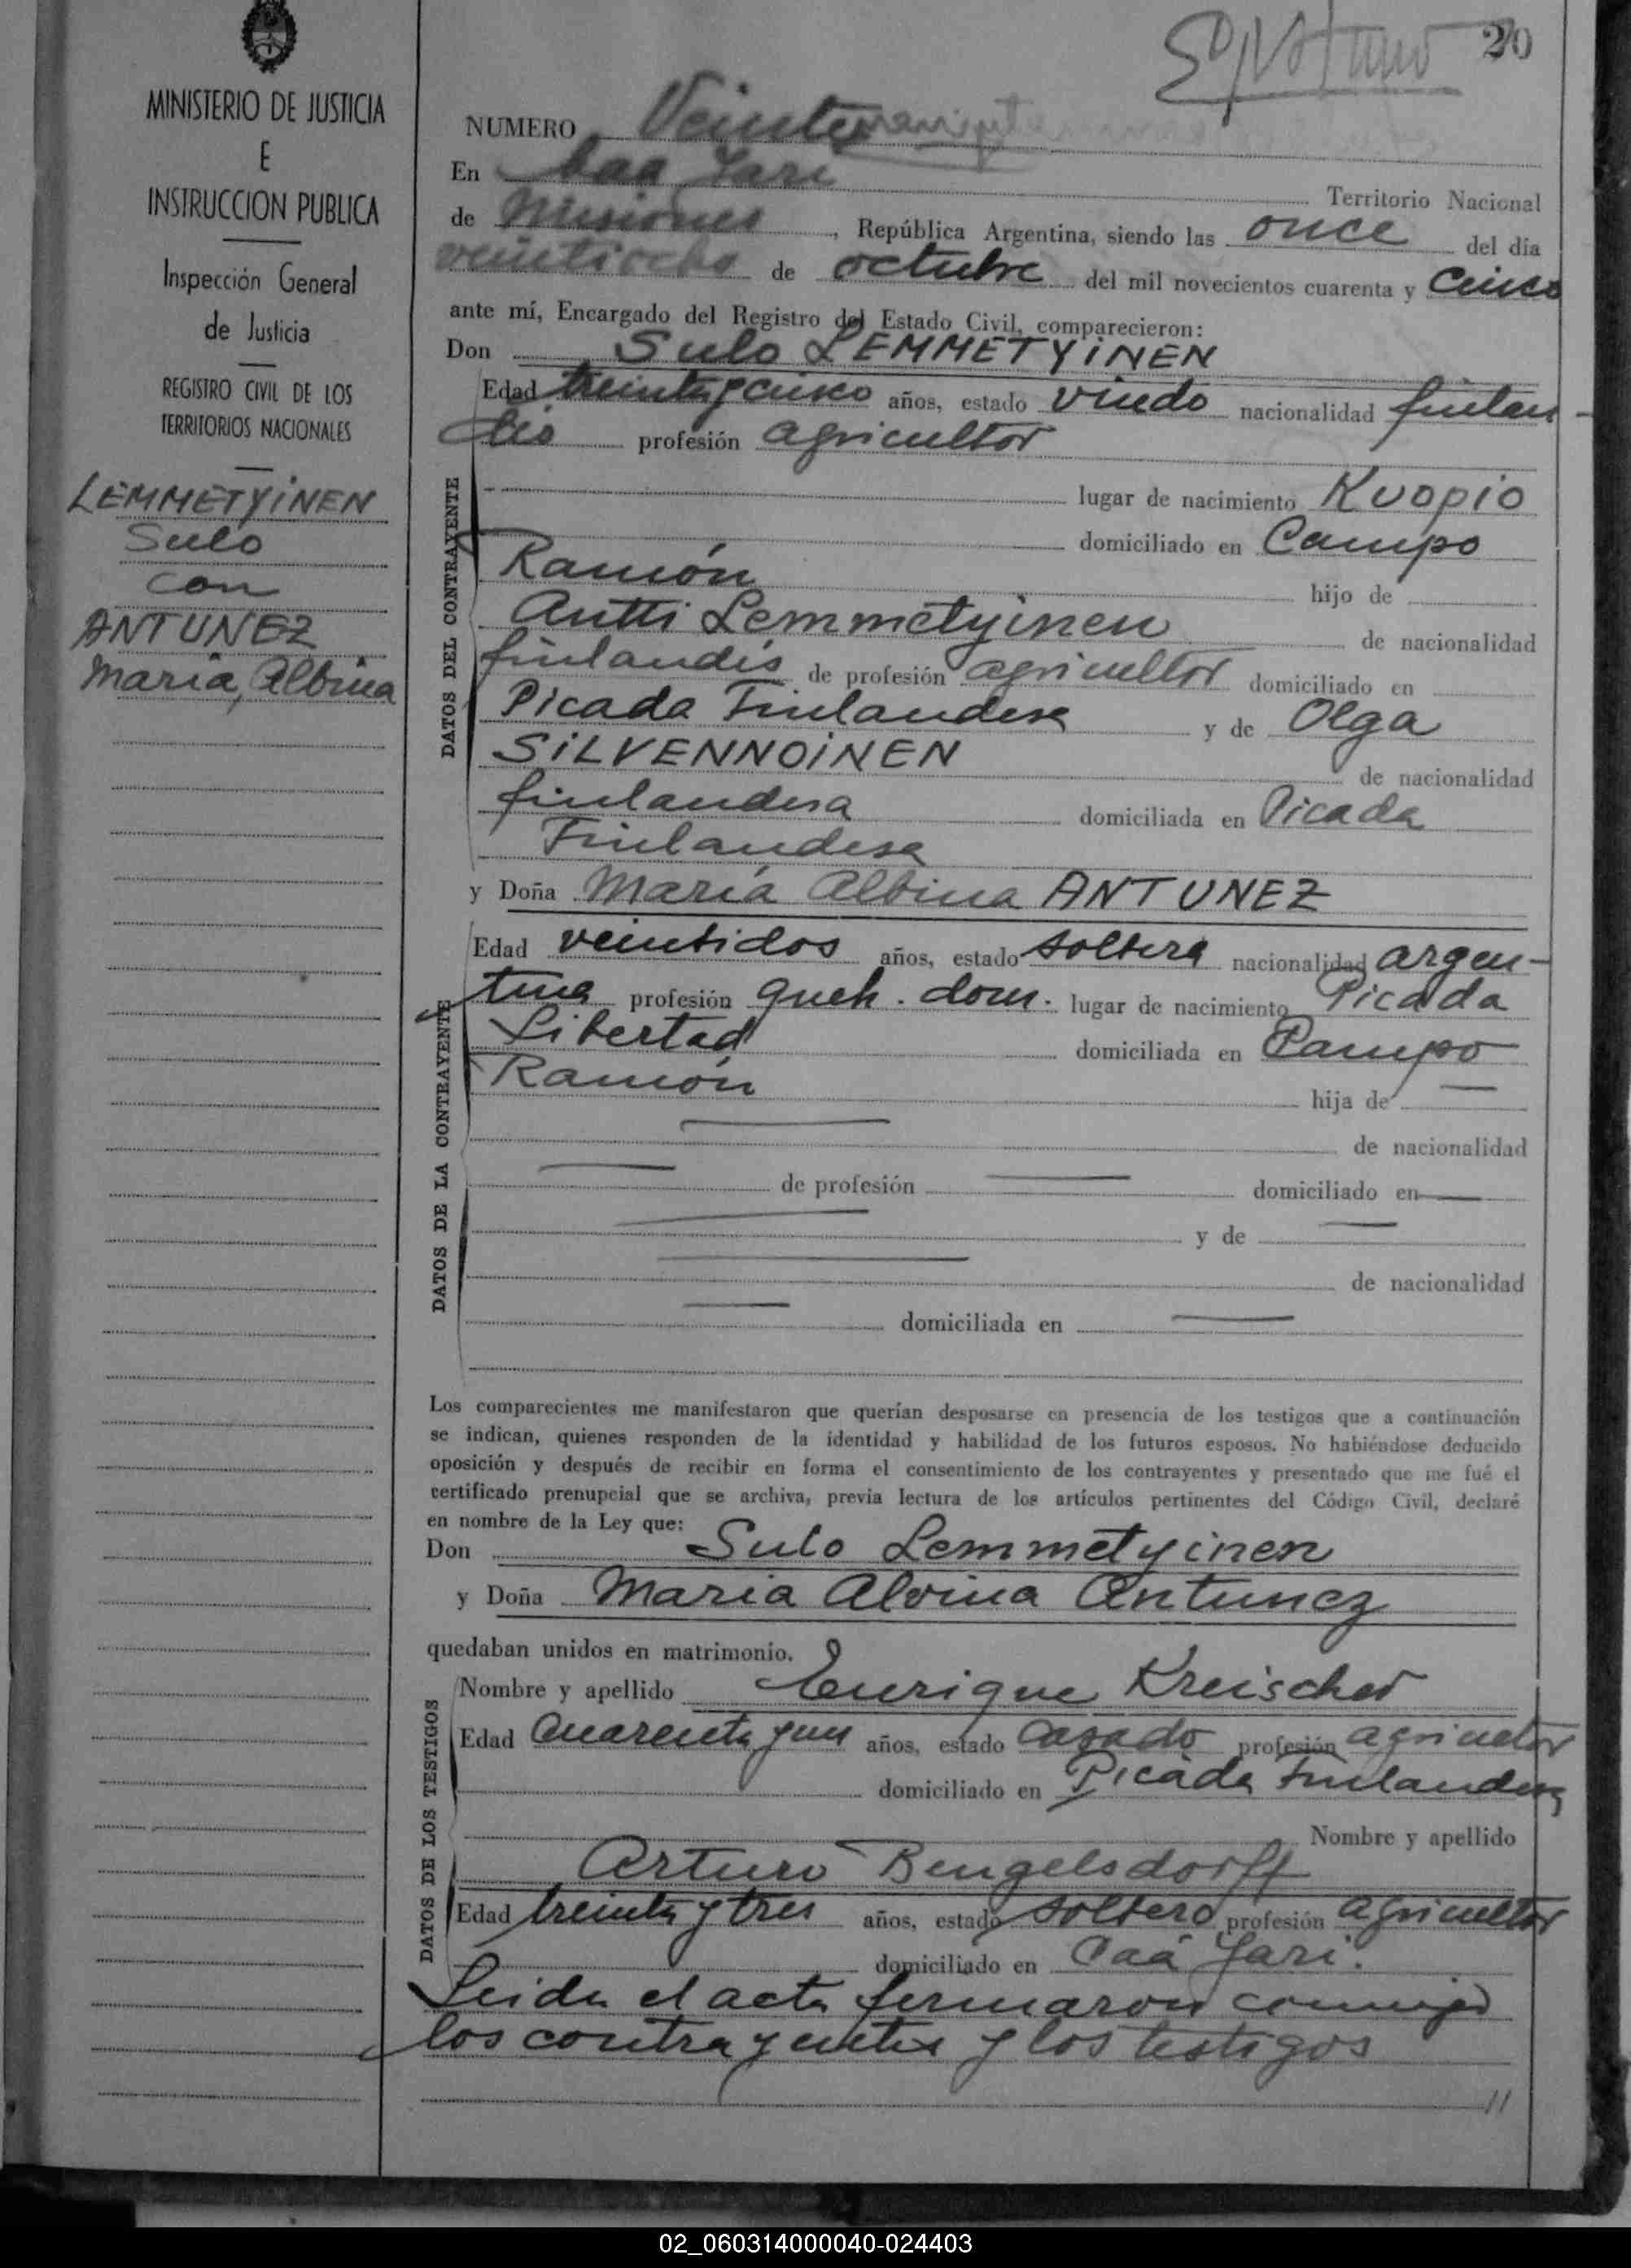 20
MINISTERIO DE JUSTICIA
E
INSTRUCCION PUBLICA
Inspección General
de Justicia
REGISTRO CIVIL DE LOS
TERRITORIOS NACIONALES
LEMMETYiNEN
Sulo
con
ANTUNEZ
Maria, Albina
NUMERO Veinte
En Caa Yari
Territorio Nacional
de Misiones, República Argentina, siendo las once del día
veintiocho de octubre del mil novecientos cuarenta y cinco
ante mí, Encargado del Registro del Estado Civil, comparecieron:
Don Sulo LEMMETYiNEN
DATOS DEL CONTRAYENTE
Edad treinta y cinco años, estado viudo nacionalidad finlan-
dés profesión agricultor
lugar de nacimiento Kuopio
domiciliado en Campo
Ramón hijo de
Antti Lemmetyinen de nacionalidad
finlandés de profesión agricultor domiciliado en
Picada Finlandesa y de Olga
SiLVENNOiNEN de nacionalidad
finlandesa domiciliada en Picada
Finlandesa
y Doña María Albina ANTUNEZ
DATOS DE LA CONTRAYENTE
Edad veintidos años, estado soltera nacionalidad argen-
tina profesión queh. dom. lugar de nacimiento Picada
Libertad domiciliada en Campo
Ramón hija de —
— de nacionalidad
— de profesión — domiciliado en —
— y de —
— de nacionalidad
— domiciliada en —
Los comparecientes me manifestaron que querían desposarse en presencia de los testigos que a continuación
se indican, quienes responden de la identidad y habilidad de los futuros esposos. No habiéndose deducido
oposición y después de recibir en forma el consentimiento de los contrayentes y presentado que me fué el
certificado prenupcial que se archiva, previa lectura de los artículos pertinentes del Código Civil, declaré
en nombre de la Ley que:
Don Sulo Lemmetyinen
y Doña Maria Alvina Antunez
quedaban unidos en matrimonio.
DATOS DE LOS TESTIGOS
Nombre y apellido Enrique Kreischer
Edad Cuarenta y un años, estado casado profesión agricultor
domiciliado en Picada Finlandesa
Nombre y apellido
Arturo Bengelsdorff
Edad treinta y tres años, estado soltero profesión agricultor
domiciliado en Caá Yari.
Leida el acta firmaron conmigo
los contrayentes y los testigos
02_060314000040-024403